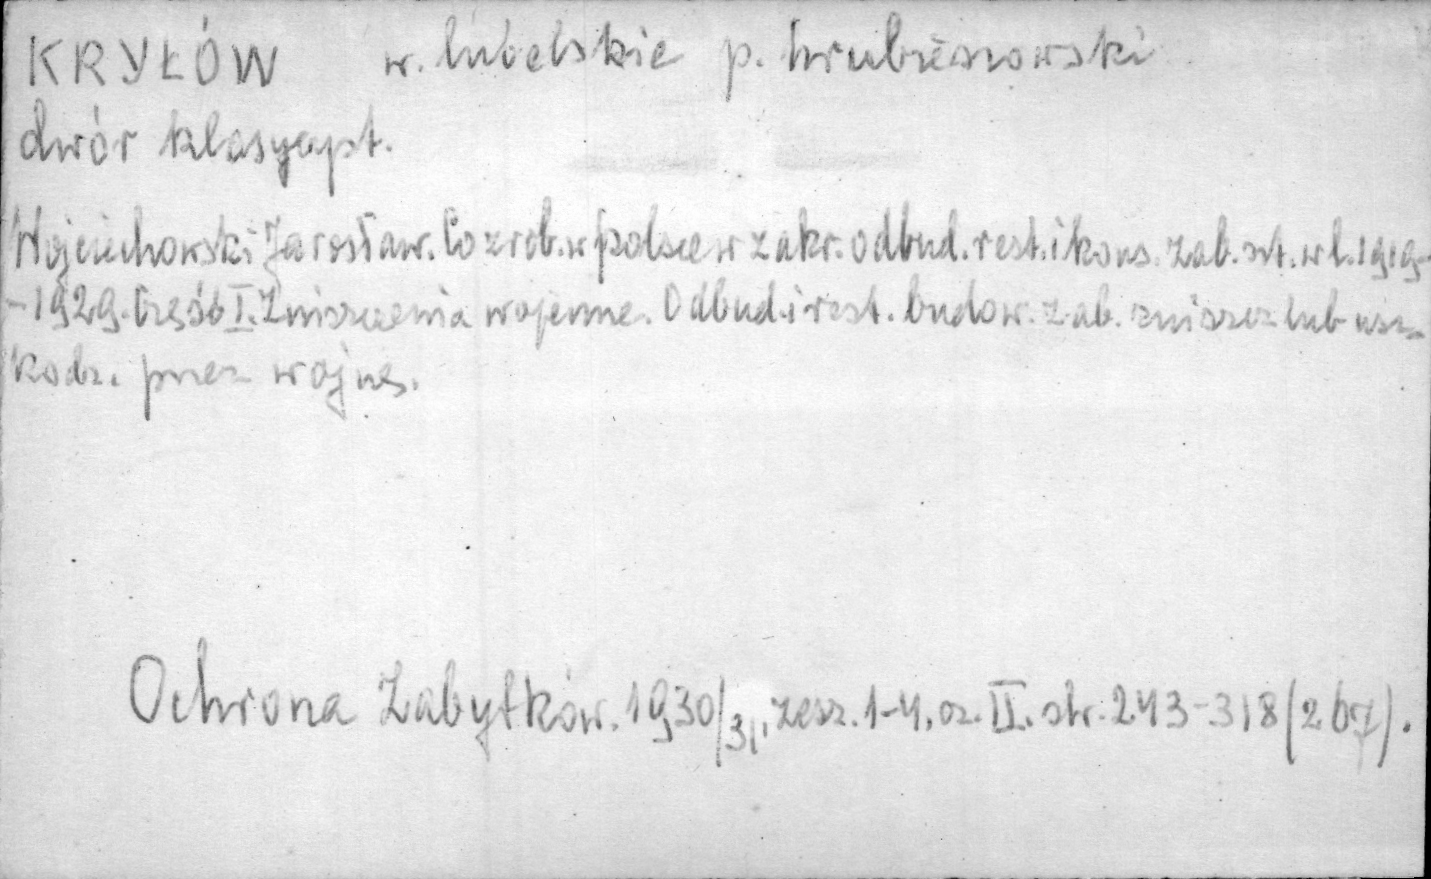 KRYŁÓW w. lubelskie p. hrubieszowski
dwór klasycyst.
Wojciechowski Jarosław. Co zrob. w Polsce w zakr. odbud. rest. i kons. zab. szt. w l. 1919-
-1929. Część I. Zniszczenia wojenne. Odbud. i rest. budow. zab. zniszcz lub usz-
kodz. przez wojnę.
Ochrona Zabytków. 1930/31, zesz. 1-4, cz. II. str. 243-318 (267).